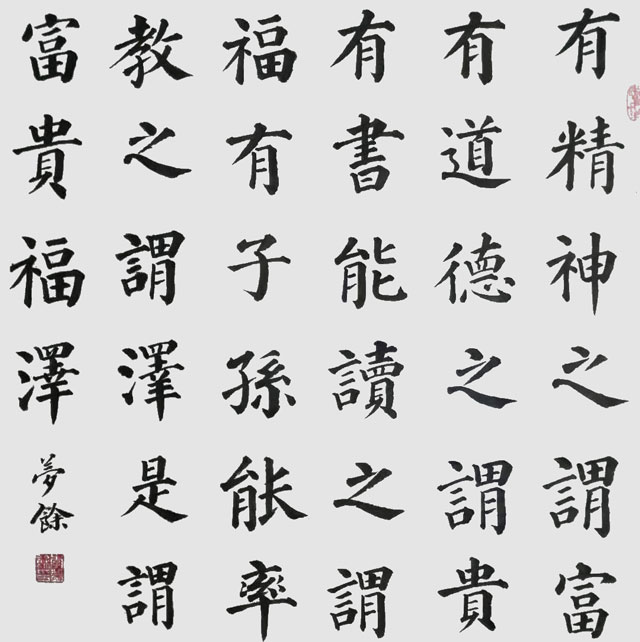 有精神之謂富
有道德之謂貴
有書能讀之謂
福有子孫能率
教之謂澤是謂
富貴福澤
夢餘